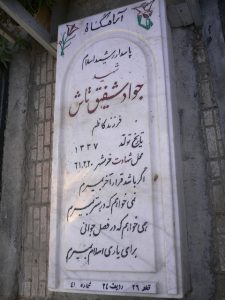 آرامگاه
پاسدار رشید اسلام
شهید
جواد شفیق تاش
فرزند کاظم
تاریخ تولد ۱۳۳۷
محل شهادت خرمشهر ۶۱.۲.۲۰
اگر باشد قرار آخر بمیرم
نمی خواهم که در بستر بمیرم
همی خواهم که در فصل جوانی
برای یاری اسلام بمیرم
قطعه ۲۶ ردیف ۲۴ شماره ۴۱